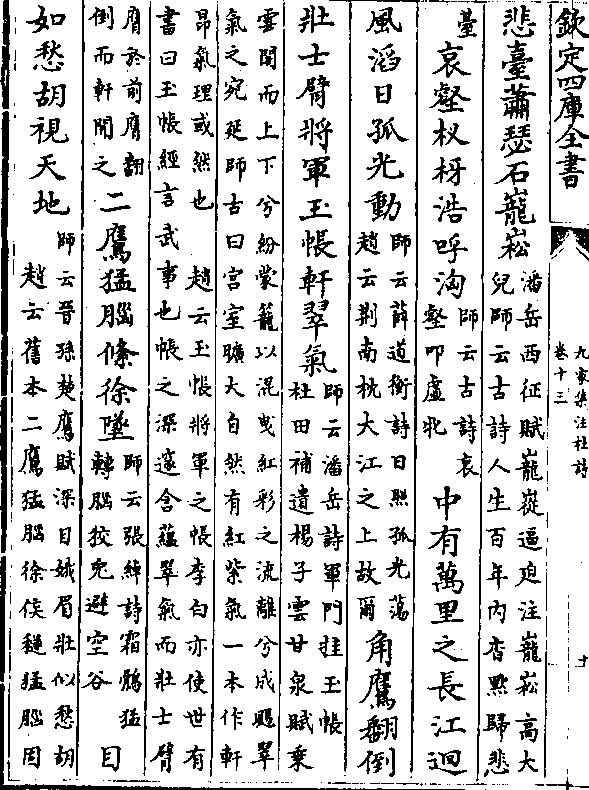 欽定四庫全書
九家集注杜詩
卷十三
十
悲臺蕭瑟石巃嵸潘岳西征賦巃嵸逼迫注巃嵸高大
皃師云古詩人生百年内杳㸃歸悲
臺哀壑杈枒浩呼洶師云古詩哀
壑叩虛牝中有萬里之長江迴
風滔日孤光動師云薛道衡詩日照孤光蕩
趙云荆南枕大江之上故爾角鷹翻倒
壯士臂將軍玉帳軒翠氣師云潘岳詩軍門挂玉帳
杜田補遺楊子雲甘泉賦乗
雲閣而上下兮紛蒙籠以混曳紅彩之流離兮成颺翠
氣之宛延師古曰宫室曠大自然有紅紫氣一本作軒
昂氣理或然也 趙云玉帳將軍之帳李白亦使世有
書曰玉帳經言武事也帳之深邃含蘊翠氣而壯士臂
鷹於前鷹翻
倒而軒開之二鷹猛腦絛徐墜師云張緯詩霜鶻猛
轉腦狡兎避空谷目
如愁胡視天地師云晉孫楚鷹賦深目蛾眉壯似愁胡
趙云舊本二鷹猛腦徐侯穟猛腦固